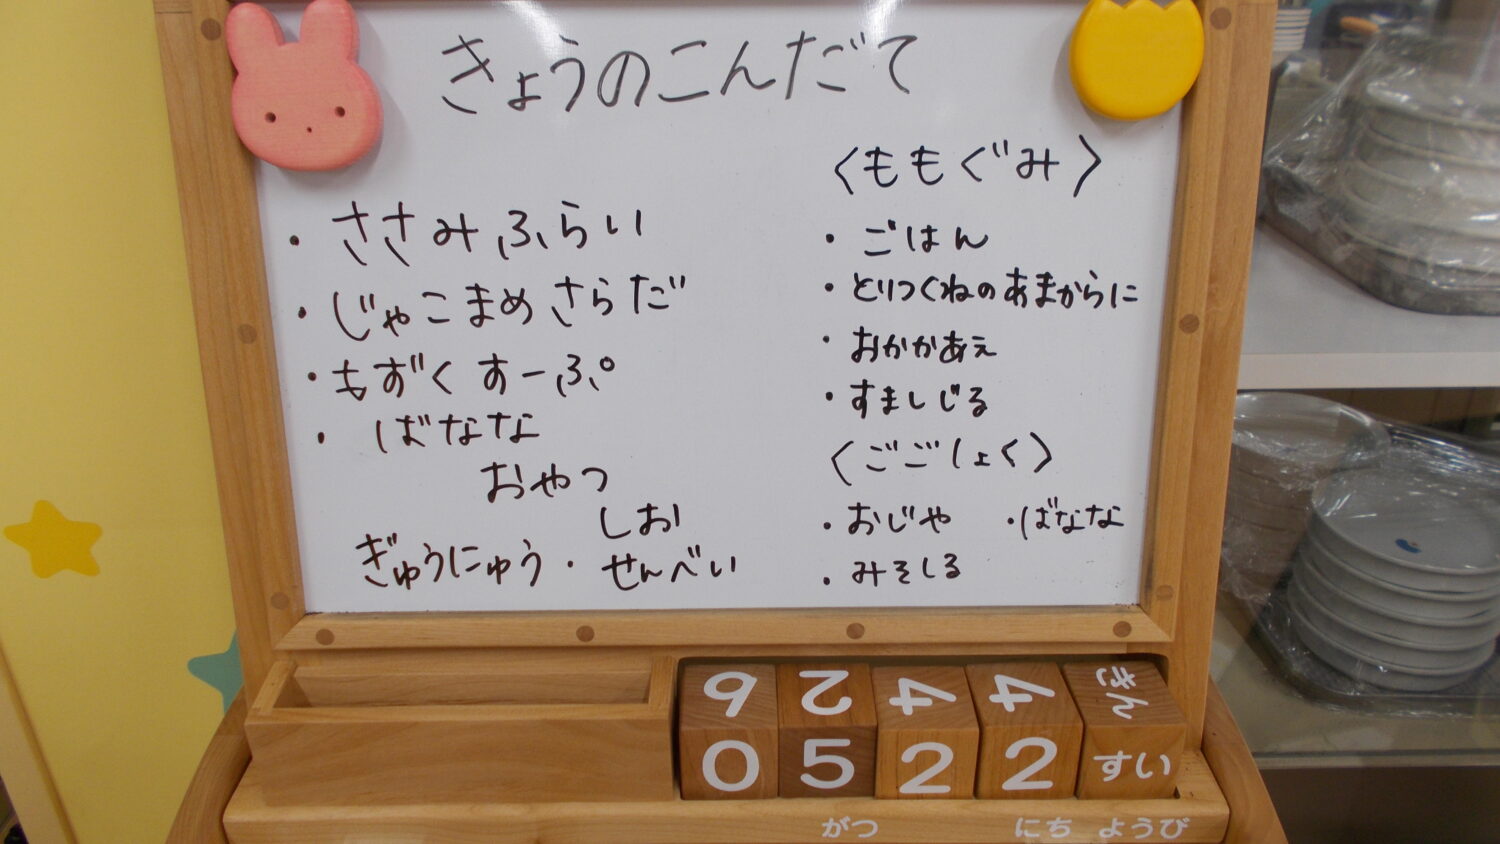 きょうのこんだて
・ささみふらい
・じゃこまめさらだ
・もずくすーぷ
・ばなな
おやつ
ぎゅうにゅう・しお
せんべい
〈ももぐみ〉
・ごはん
・とりつくねのあまからに
・おかかあえ
・すましじる
〈ごごしょく〉
・おじや ・ばなな
・みそしる
6 2 4 4 きん
0 5 2 2 すい
がつ にち ようび